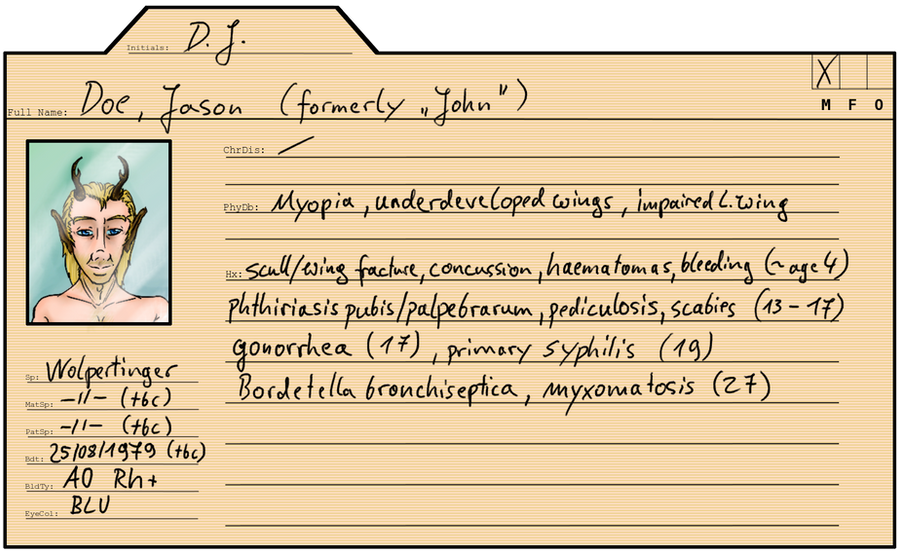 Initials: D. J.
Full Name: Doe, Jason (formerly „John")
X
M F O
ChrDis: /
PhyDb: Myopia, underdeveloped wings, impaired L. wing
Hx: scull/wing facture, concussion, haematomas, bleeding (~ age 4)
phthiriasis pubis/palpebrarum, pediculosis, scabies (13 – 17)
gonorrhea (17), primary syphilis (19)
Bordetella bronchiseptica, myxomatosis (27)
Sp: Wolpertinger
MatSp: –//– (tbc)
PatSp: –//– (tbc)
Bdt: 25/08/1979 (tbc)
BldTy: A0 Rh+
EyeCol: BLU